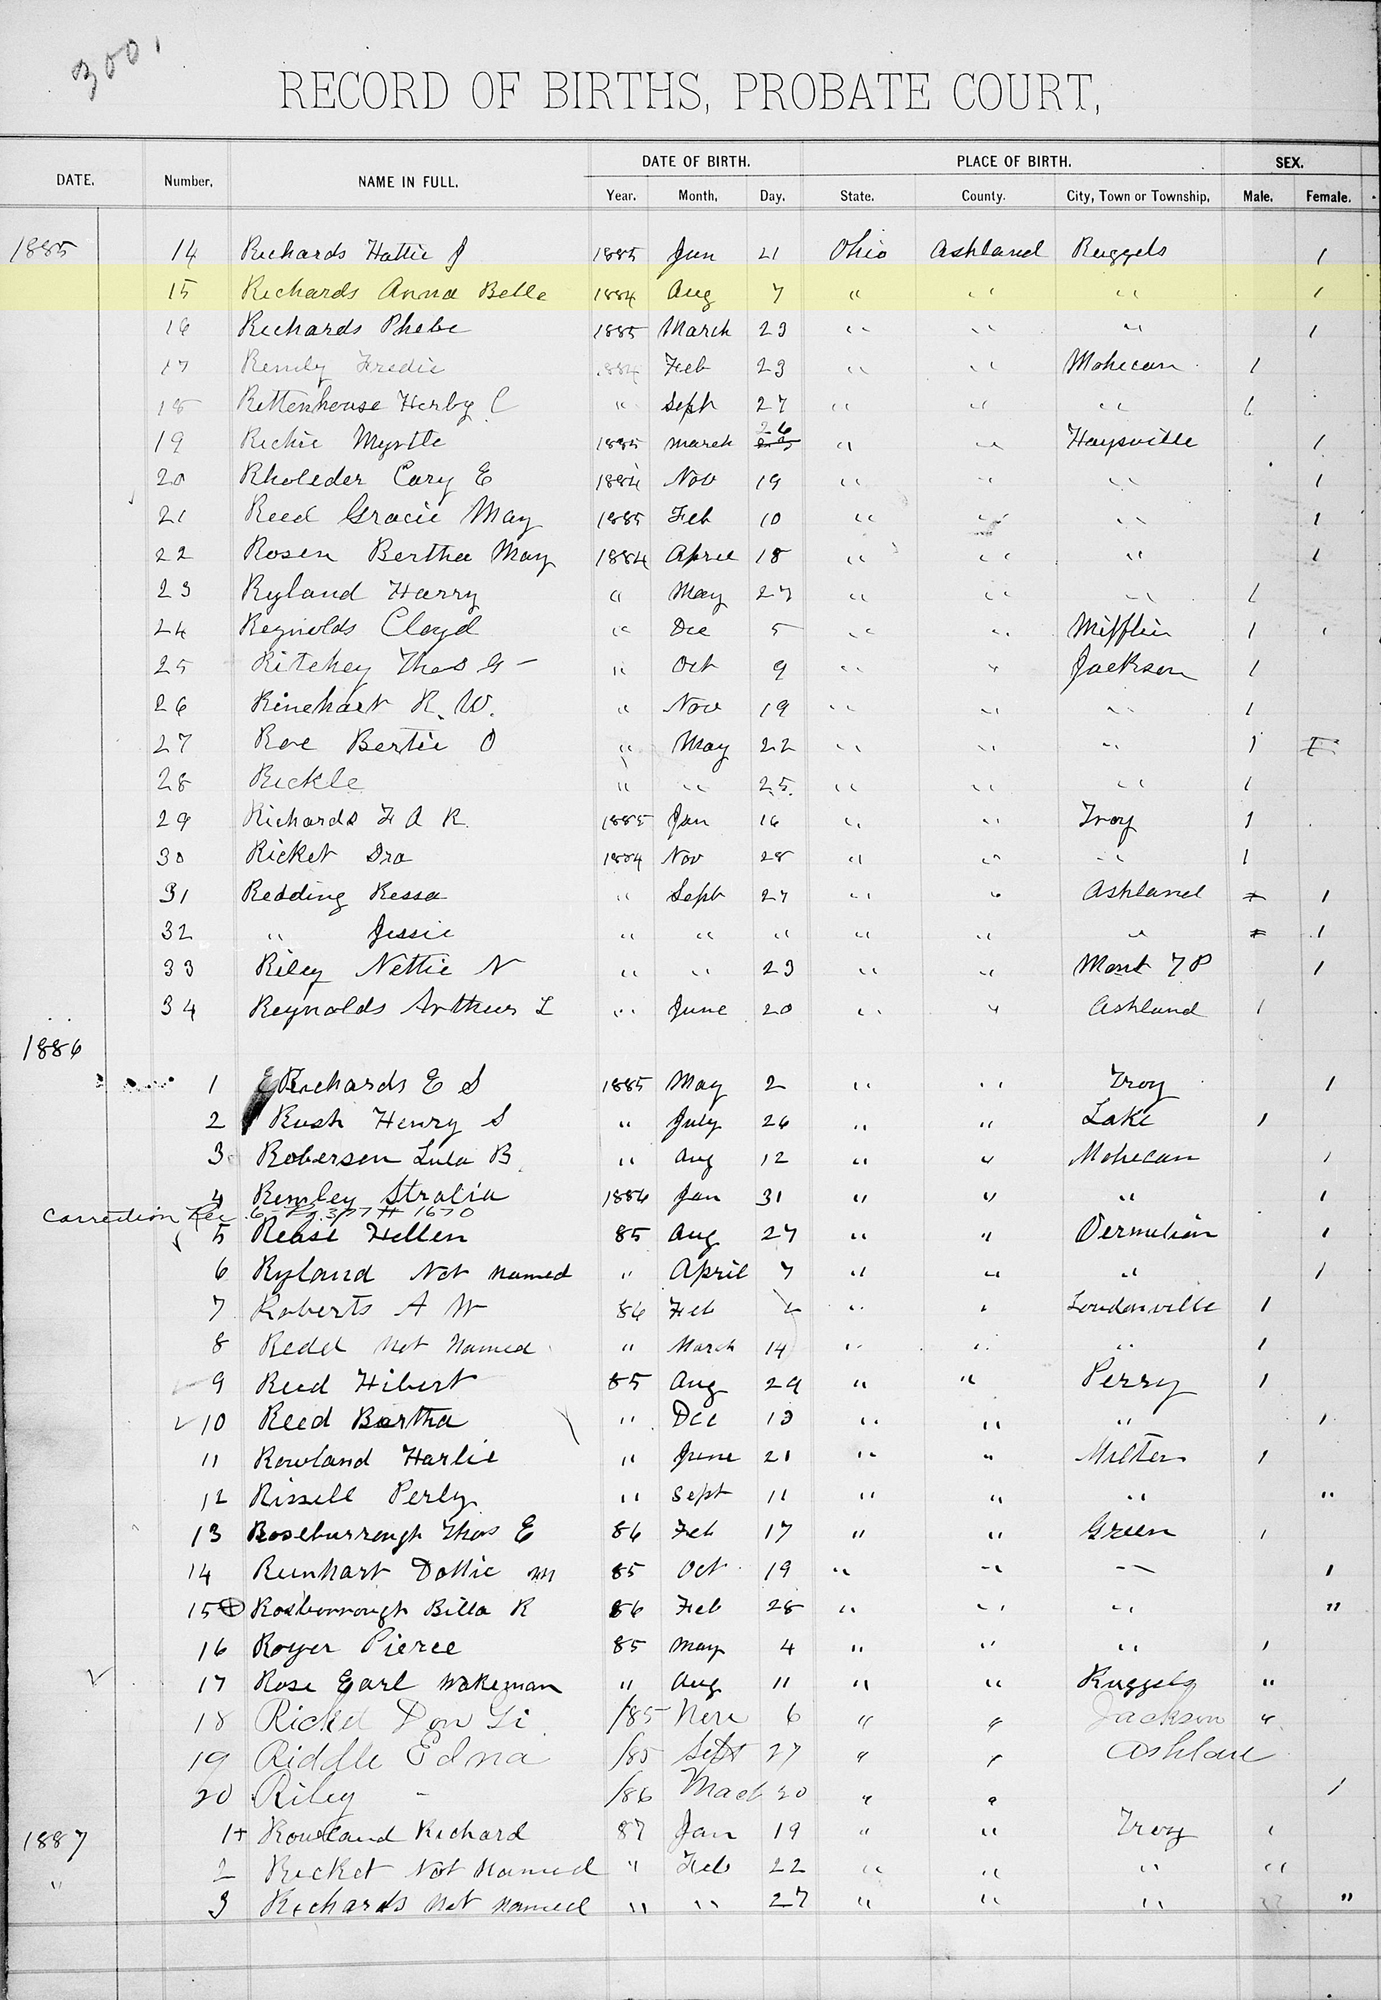 300.
RECORD OF BIRTHS, PROBATE COURT,
DATE. Number. NAME IN FULL. DATE OF BIRTH. PLACE OF BIRTH. SEX.
Year. Month, Day. State. County. City, Town or Township, Male. Female.
1885 14 Richards Hattie J 1885 Jan 21 Ohio Ashland Ruggels 1
15 Richards Anna Belle 1884 Aug 7 " " " 1
16 Richards Phebe 1885 March 23 " " " 1
17 Remly Fredie 1884 Feb 23 " " Mohecan 1
18 Rittenhouse Herby C " Sept 27 " " " 1
19 Richie Myrtle 1885 March 26 " " Haysville 1
20 Rholeder Cary E 1884 Nov 19 " " " 1
21 Reed Gracie May 1885 Feb 10 " " " 1
22 Rosen Bertha May 1884 April 18 " " " 1
23 Ryland Harry " May 27 " " " 1
24 Reynolds Cloyd " Dec 5 " " Mifflin 1
25 Ritchey Thos G - " Oct 9 " " Jackson 1
26 Rinehart R. W. " Nov 19 " " " 1
27 Roe Bertie O " May 22 " " " 1 F
28 Rickle " " 25. " " " 1
29 Richards F A R 1885 Jan 16 " " Troy 1
30 Ricket Dra 1884 Nov 28 " " " 1
31 Redding Ressa " Sept 27 " " Ashland 1
32 " Jessie " " " " " " 1
33 Riley Nettie N " " 23 " " Mont T P 1
34 Reynolds Arthur L " June 20 " " Ashland 1
1886
1 Richards E S 1885 May 2 " " Troy 1
2 Rush Henry S " July 26 " " Lake 1
3 Roberson Lula B " Aug 12 " " Mohecan 1
4 Remley Stralia 1886 Jan 31 " " " 1
Correction Rec 6 - Pg 377 # 1670
5 Rease Hellen 85 Aug 27 " " Vermulion 1
6 Ryland Not named " April 7 " " " 1
7 Roberts A W 86 Feb 2 " " Loudonville 1
8 Redd not named " March 14 " " " 1
9 Reed Hibert 85 Aug 29 " " Perry 1
10 Reed Bertha " Dec 13 " " " 1
11 Rowland Harlie " June 21 " " Milton 1
12 Rissell Perly " Sept 11 " " " "
13 Roseburrough Thos E 86 Feb 17 " " Green 1
14 Reinhart Dottie M 85 Oct 19 " " " 1
15 Rosborrough Billa R 86 Feb 28 " " " "
16 Royer Pierce 85 May 4 " " " 1
17 Rose Earl Wakeman " Aug 11 " " Ruggels "
18 Rickel Don Li /85 Nov 6 " " Jackson "
19 Riddle Edna /85 Sept 27 " " Ashland
20 Riley - /86 Mach 20 " " 1
1887 1+ Rowland Richard 87 Jan 19 " " Troy 1
" 2 Ricket Not Named " Feb 22 " " " "
3 Richards not named " " 27 " " " "